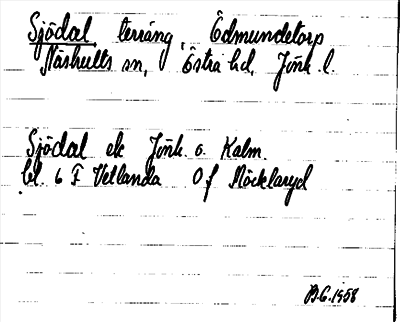 Sjödal terräng, Ödmundetorp
Näshults sn, Östra hd, Jönk. l.
Sjödal ek Jönk. o. Kalm.
bl. 6 F Vetlanda O f Möcklaryd
B.G. 1958